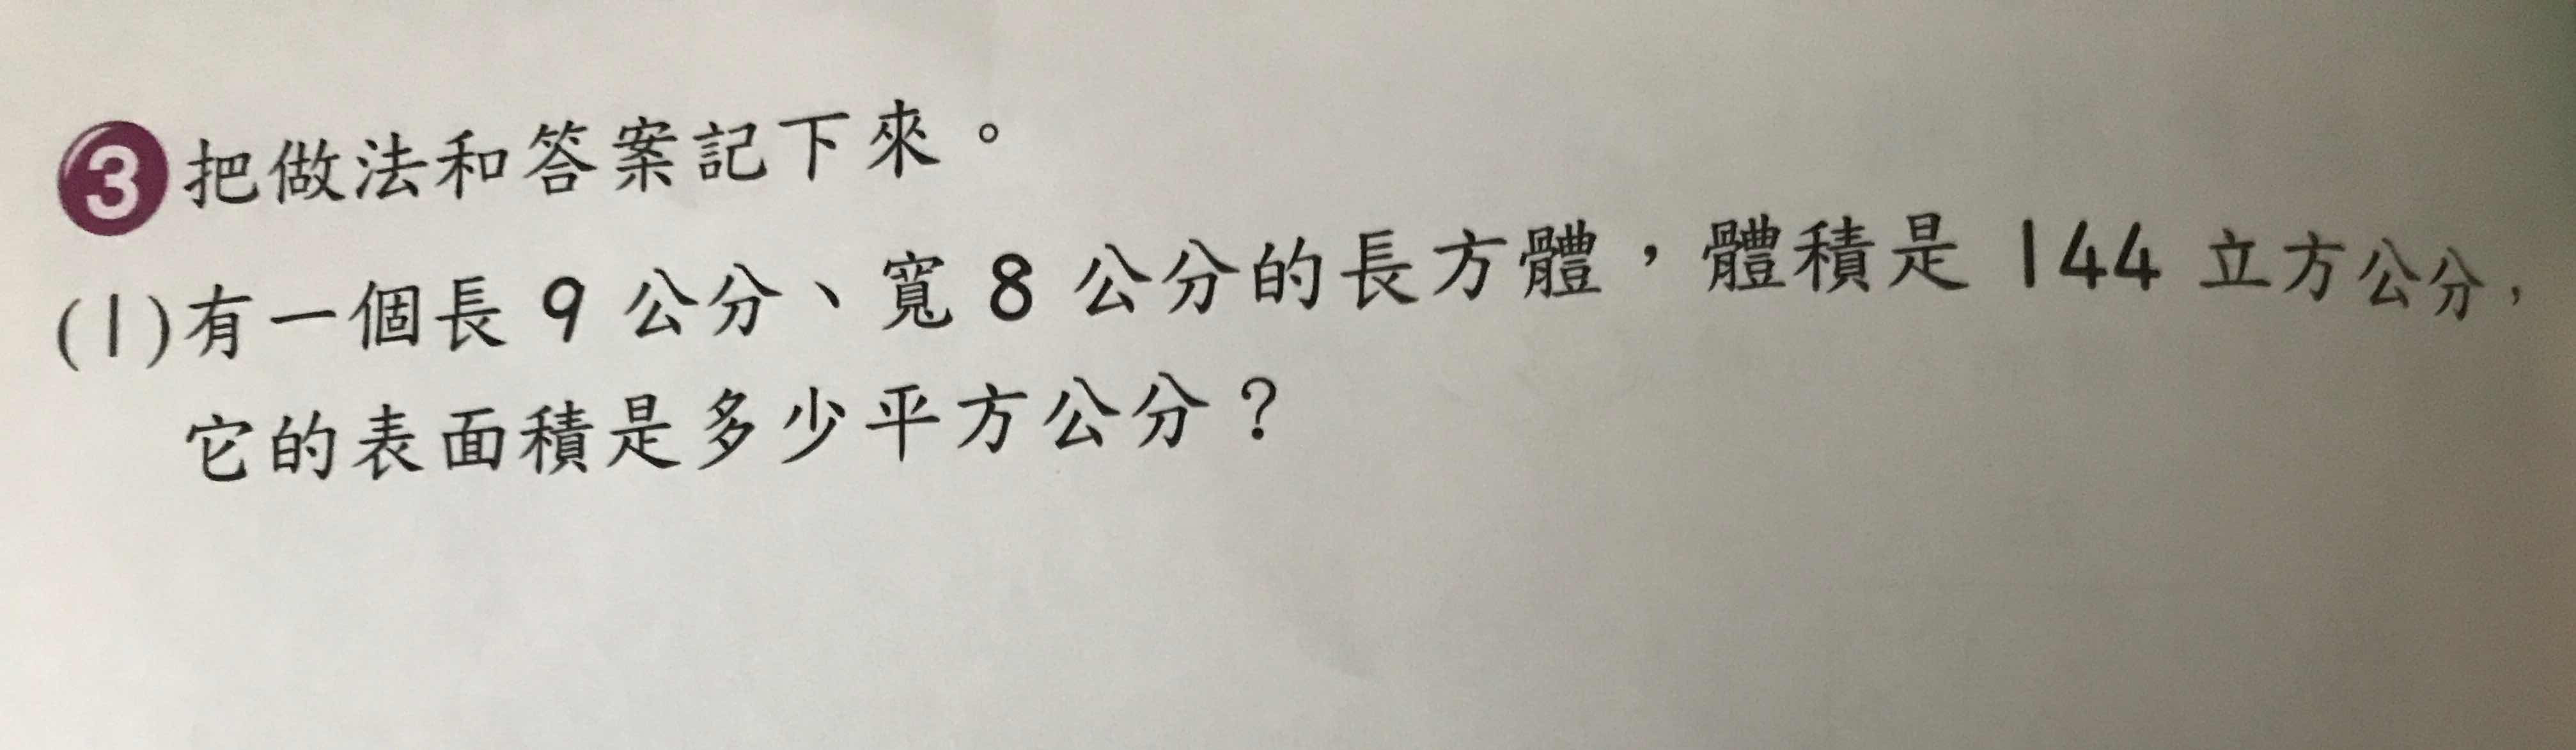 3 把做法和答案記下來。
(1)有一個長 9 公分、寬 8 公分的長方體，體積是 144 立方公分，
它的表面積是多少平方公分？